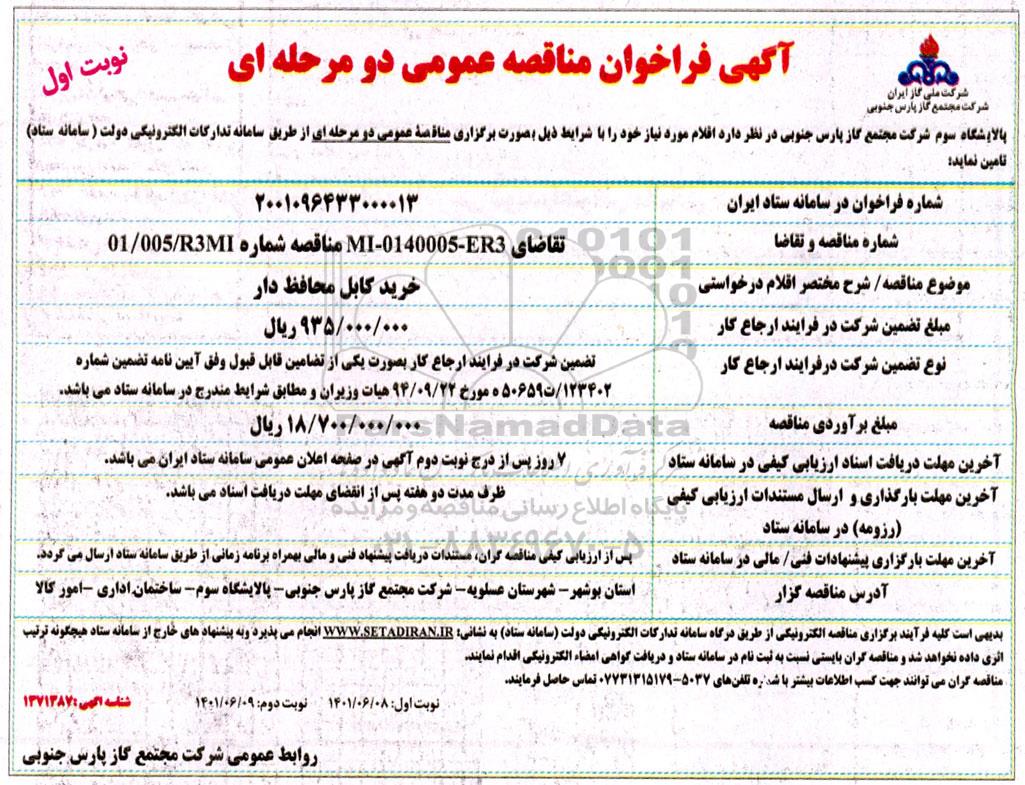 نوبت اول
آگهی فراخوان مناقصه عمومی دو مرحله ای
شرکت ملی گاز ایران
شرکت مجتمع گاز پارس جنوبی
پالایشگاه سوم شرکت مجتمع گاز پارس جنوبی در نظر دارد اقلام مورد نیاز خود را با شرایط ذیل بصورت برگزاری مناقصة عمومی دو مرحله ای از طریق سامانه تدارکات الکترونیکی دولت (سامانه ستاد)
تامین نماید:
شماره فراخوان در سامانه ستاد ایران ۲۰۰۱۰۹۶۴۳۳۰۰۰۰۱۳
شماره مناقصه و تقاضا تقاضای MI-0140005-ER3 مناقصه شماره 01/005/R3MI
موضوع مناقصه/ شرح مختصر اقلام درخواستی خرید کابل محافظ دار
مبلغ تضمین شرکت در فرایند ارجاع کار ۹۳۵/۰۰۰/۰۰۰ ریال
نوع تضمین شرکت درفرایند ارجاع کار تضمین شرکت در فرایند ارجاع کار بصورت یکی از تضامین قابل قبول وفق آیین نامه تضمین شماره
۱۲۳۴۰۲/ت۵۰۶۵۹ ه مورخ ۹۴/۰۹/۲۲ هیات وزیران و مطابق شرایط مندرج در سامانه ستاد می باشد.
مبلغ برآوردی مناقصه ۱۸/۷۰۰/۰۰۰/۰۰۰ ریال
ParsNamadData
آخرین مهلت دریافت اسناد ارزیابی کیفی در سامانه ستاد ۷ روز پس از درج نوبت دوم آگهی در صفحه اعلان عمومی سامانه ستاد ایران می باشد.
آخرین مهلت بارگذاری و ارسال مستندات ارزیابی کیفی ظرف مدت دو هفته پس از انقضای مهلت دریافت اسناد می باشد.
(رزومه) در سامانه ستاد
پایگاه اطلاع رسانی مناقصه و مزایده
آخرین مهلت بارگزاری پیشنهادات فنی/ مالی در سامانه ستاد پس از ارزیابی کیفی مناقصه گران، مستندات دریافت پیشنهاد فنی و مالی بهمراه برنامه زمانی از طریق سامانه ستاد ارسال می گردد.
آدرس مناقصه گزار استان بوشهر- شهرستان عسلویه- شرکت مجتمع گاز پارس جنوبی- پالایشگاه سوم- ساختمان اداری -امور کالا
بدیهی است کلیه فرآیند برگزاری مناقصه الکترونیکی از طریق درگاه سامانه تدارکات الکترونیکی دولت (سامانه ستاد) به نشانی: WWW.SETADIRAN.IR انجام می پذیرد وبه پیشنهاد های خارج از سامانه ستاد هیچگونه ترتیب
اثری داده نخواهد شد و مناقصه گران بایستی نسبت به ثبت نام در سامانه ستاد و دریافت گواهی امضاء الکترونیکی اقدام نمایند.
مناقصه گران می توانند جهت کسب اطلاعات بیشتر با شماره تلفن‌های ۵۰۳۷-۰۷۷۳۱۳۱۵۱۷۹ تماس حاصل فرمایند.
نوبت اول: ۱۴۰۱/۰۶/۰۸ نوبت دوم: ۱۴۰۱/۰۶/۰۹ شناسه آگهی: ۱۳۷۱۳۸۷
روابط عمومی شرکت مجتمع گاز پارس جنوبی